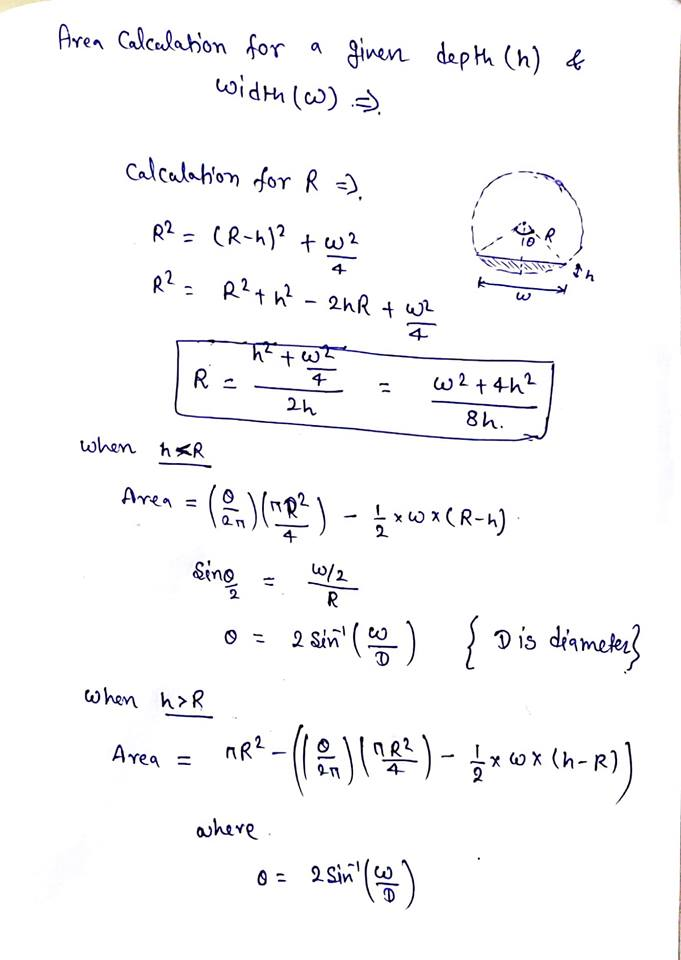 Area Calculation for a given depth (h) &
width (ω) ⇒.
Calculation for R ⇒.
R² = (R-h)² + ω²/4
R² = R² + h² - 2hR + ω²/4
R = (h² + ω²/4)/2h = (ω² + 4h²)/8h.
θ R
h
ω
when h<R
Area = (θ/2π)(πR²/4) - 1/2 × ω × (R-h).
Sin θ/2 = (ω/2)/R
θ = 2 Sin⁻¹(ω/D) { D is diameter}
when h>R
Area = πR² - ((θ/2π)(πR²/4) - 1/2 × ω × (h-R))
where.
θ = 2 Sin⁻¹(ω/D)